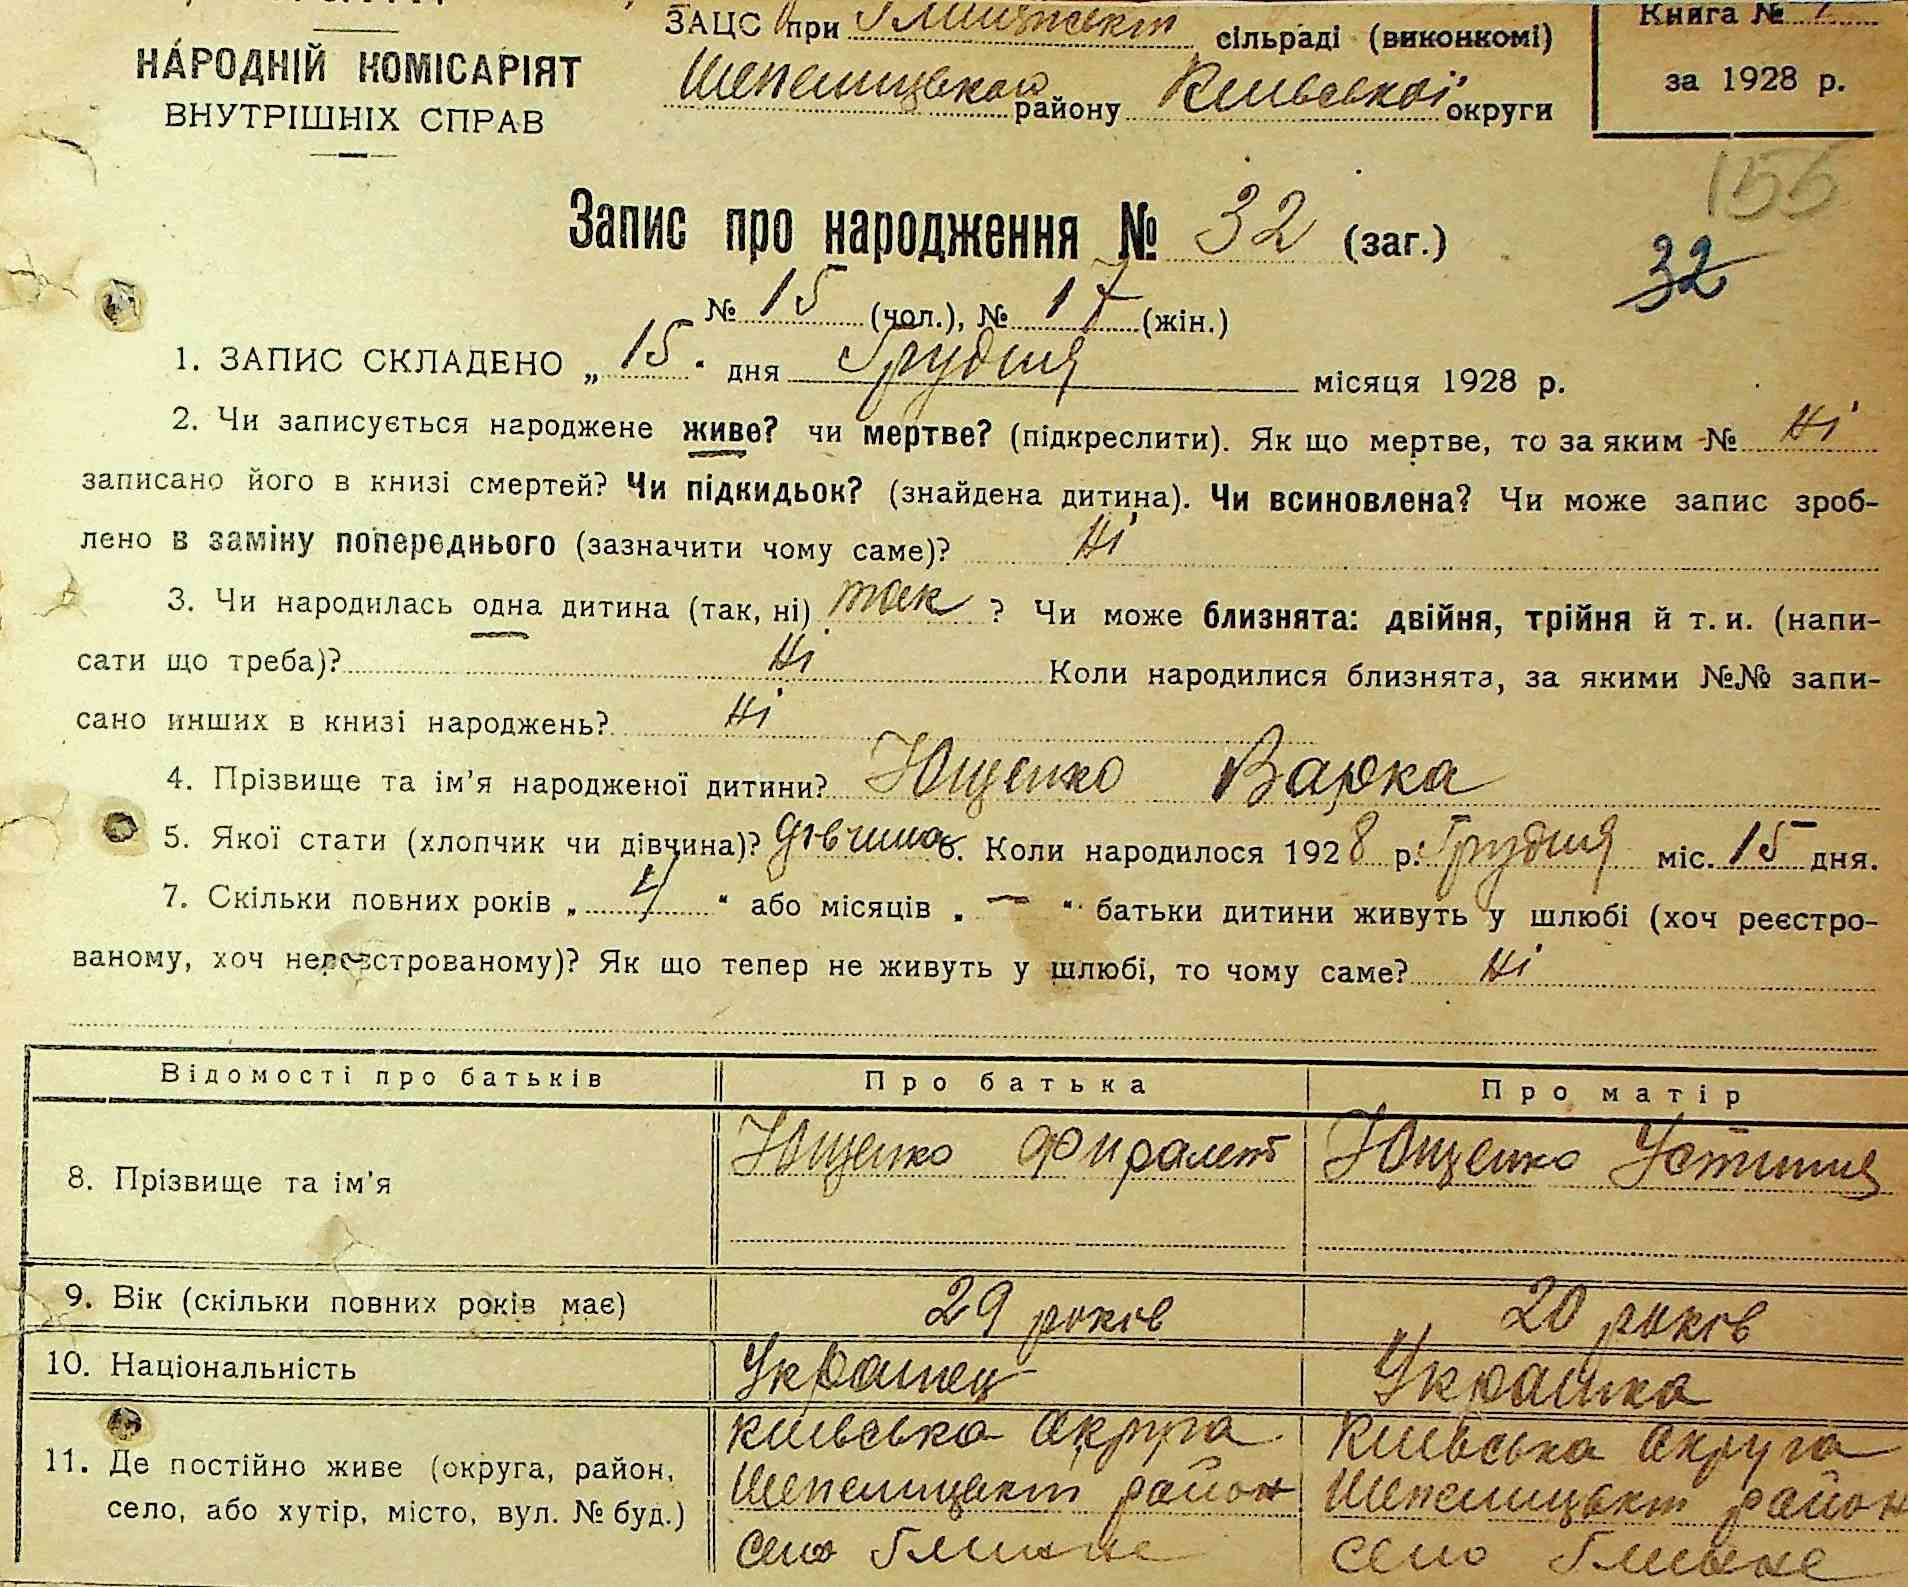 НАРОДНІЙ КОМІСАРІЯТ
ВНУТРІШНІХ СПРАВ
ЗАЦС при сільраді (виконкомі)
Шепелицького району Київської округи
Книга №
за 1928 р.
155
Запис про народження № 32 (заг.)
32
№ 15 (чол.), № 17 (жін.)
1. ЗАПИС СКЛАДЕНО „ 15 “ дня Грудня місяця 1928 р.
2. Чи записується народжене живе? чи мертве? (підкреслити). Як що мертве, то за яким № Ні
записано його в книзі смертей? Чи підкидьок? (знайдена дитина). Чи всиновлена? Чи може запис зроб-
лено в заміну попереднього (зазначити чому саме)? Ні
3. Чи народилась одна дитина (так, ні) так ? Чи може близнята: двійня, трійня й т. и. (напи-
сати що треба)? Ні Коли народилися близнята, за якими №№ запи-
сано инших в книзі народжень? Ні
4. Прізвище та ім’я народженої дитини? Ющенко Варка
5. Якої стати (хлопчик чи дівчина)? дівчина 6. Коли народилося 1928 р. Грудня міс. 15 дня.
7. Скільки повних років „ 4 “ або місяців „ — “ батьки дитини живуть у шлюбі (хоч реєстро-
ваному, хоч нереєстрованому)? Як що тепер не живуть у шлюбі, то чому саме? Ні
Відомості про батьків Про батька Про матір
8. Прізвище та ім’я Ющенко Ющенко Устиния
9. Вік (скільки повних років має) 29 років 20 років
10. Національність Украінец Украінка
11. Де постійно живе (округа, район,
село, або хутір, місто, вул. № буд.)
Київська округа Київська округа
Шепелицький район Шепелицький район
село Глинне село Глинне